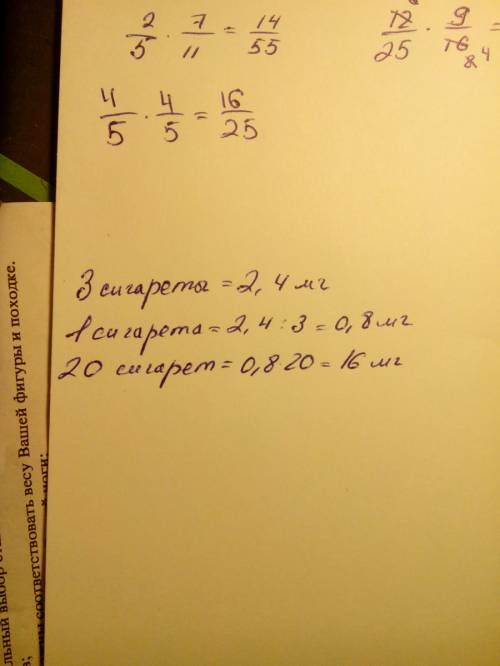 2/5 · 7/11 = 14/55
12/25 · 9/16 =
8 4
4/5 · 4/5 = 16/25
3 сигареты = 2,4 мг
1 сигарета = 2,4 : 3 = 0,8 мг
20 сигарет = 0,8·20 = 16 мг
льный выбор
соответствовать весу Вашей фигуры и походке.
ноги;